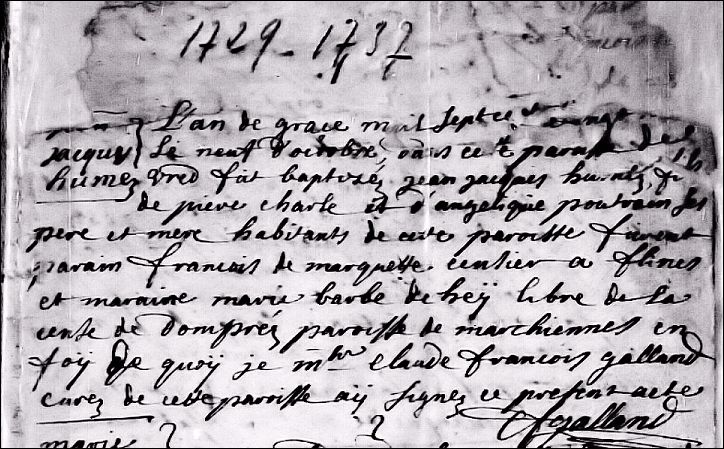 1729 - 1737
L'an de grace mil septce vingt
jacques Le neuf d'octobre dans cette paroisse de
humez Vred fut baptizéz jean jacques humez fils
de piere charle et d'angelique poutrain ses
pere et mere habitants de cette paroisse furent
parain francois de marquette censier a flines
et maraine marie barbe de heÿ libre de La
cense de Dompréz paroisse de marchiennes en
foÿ de quoÿ je mtre claude francois galland
curez de cette paroisse aÿ signez ce present acte
fgalland
marie